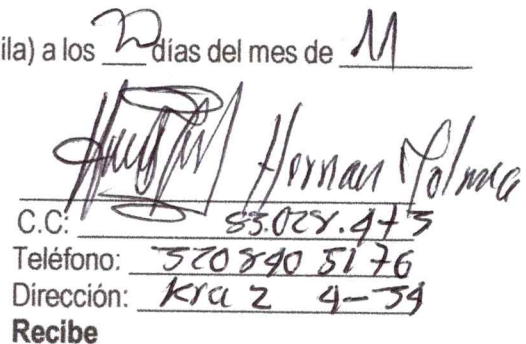 ila) a los 20 días del mes de 11
Hernan Molina
C.C: 83.028.473
Teléfono: 320 840 5176
Dirección: Kra 2 4-34
Recibe